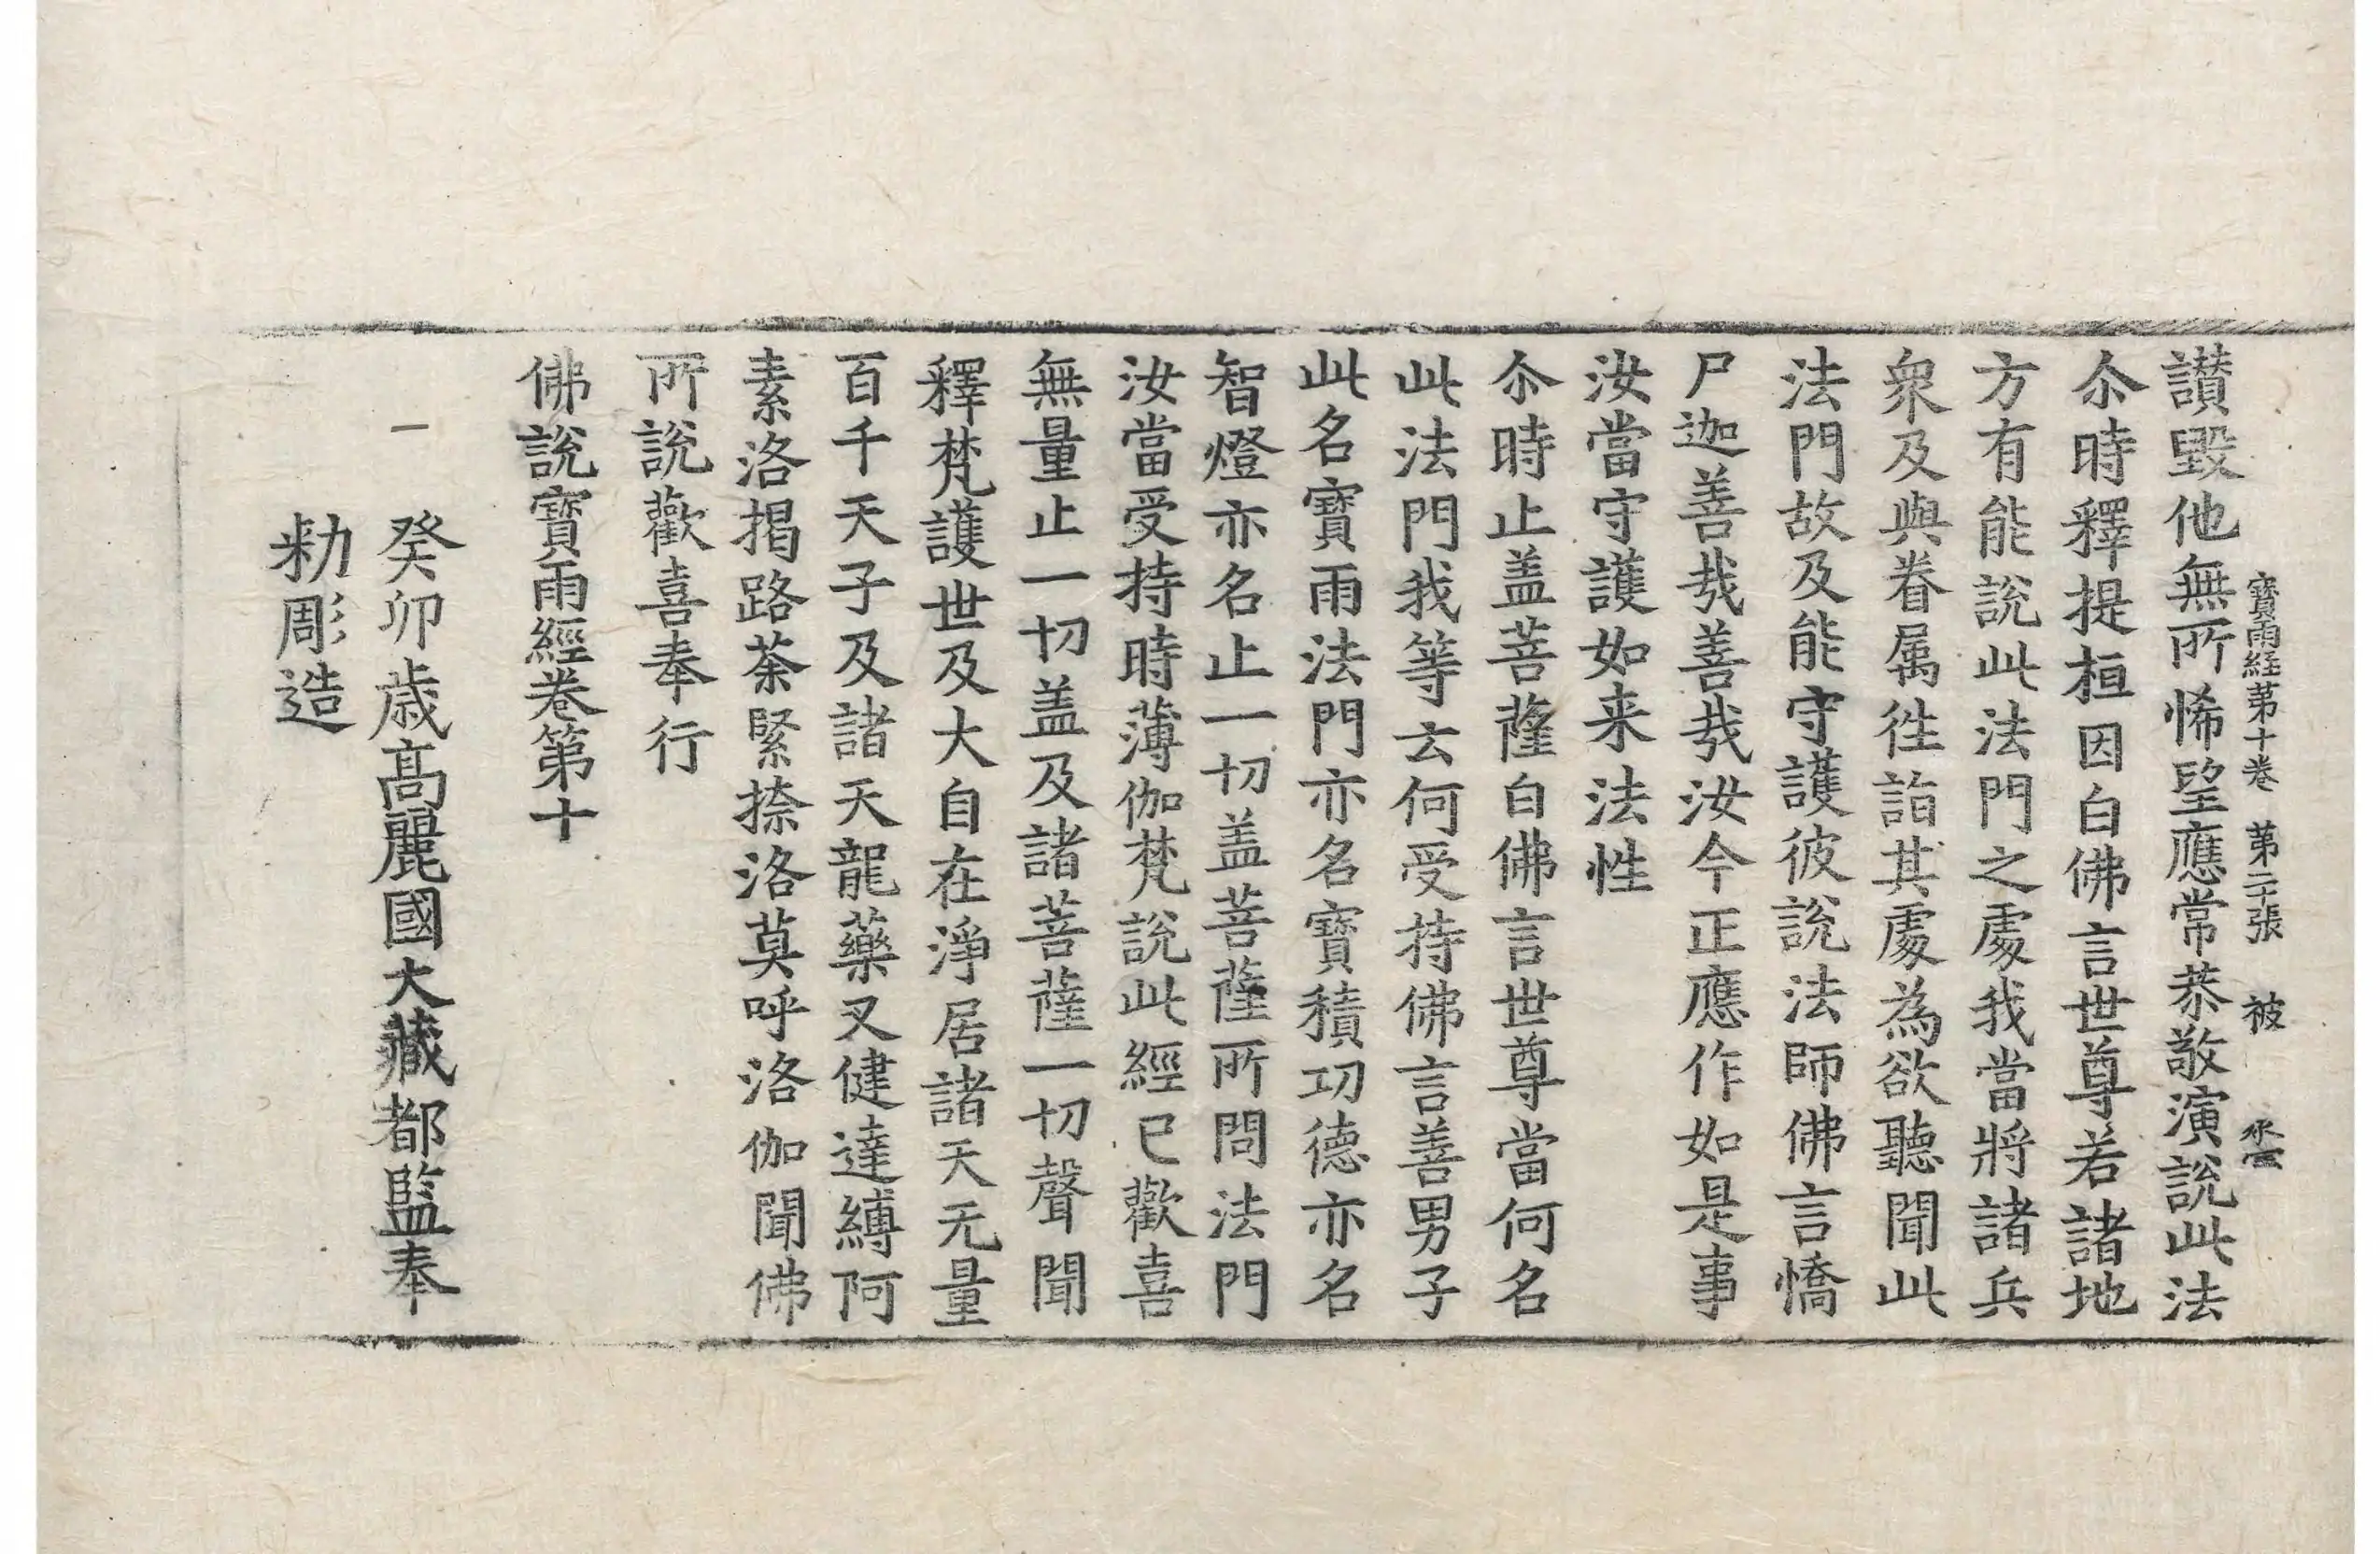 寶雨経苐十卷 苐二十張 被
讃毀他無所悕望應常恭敬演說此法
尒時釋提桓因白佛言世尊若諸地
方有能說此法門之處我當將諸兵
衆及與眷属徃詣其處為欲聽聞此
法門故及能守護彼說法師佛言憍
尸迦善㢤善㢤汝今正應作如是事
汝當守護如来法性
尒時止盖菩薩白佛言世尊當何名
此法門我等云何受持佛言善男子
此名寶雨法門亦名寶積功德亦名
智燈亦名止一切盖菩薩所問法門
汝當受持時薄伽梵說此經已歡喜
無量止一切盖及諸菩薩一切聲聞
釋梵護世及大自在淨居諸天无量
百千天子及諸天龍藥叉健達縛阿
素洛揭路荼緊捺洛莫呼洛伽聞佛
所說歡喜奉行
佛說寶雨經卷第十
癸卯歳髙麗國大藏都監奉
勑彫造